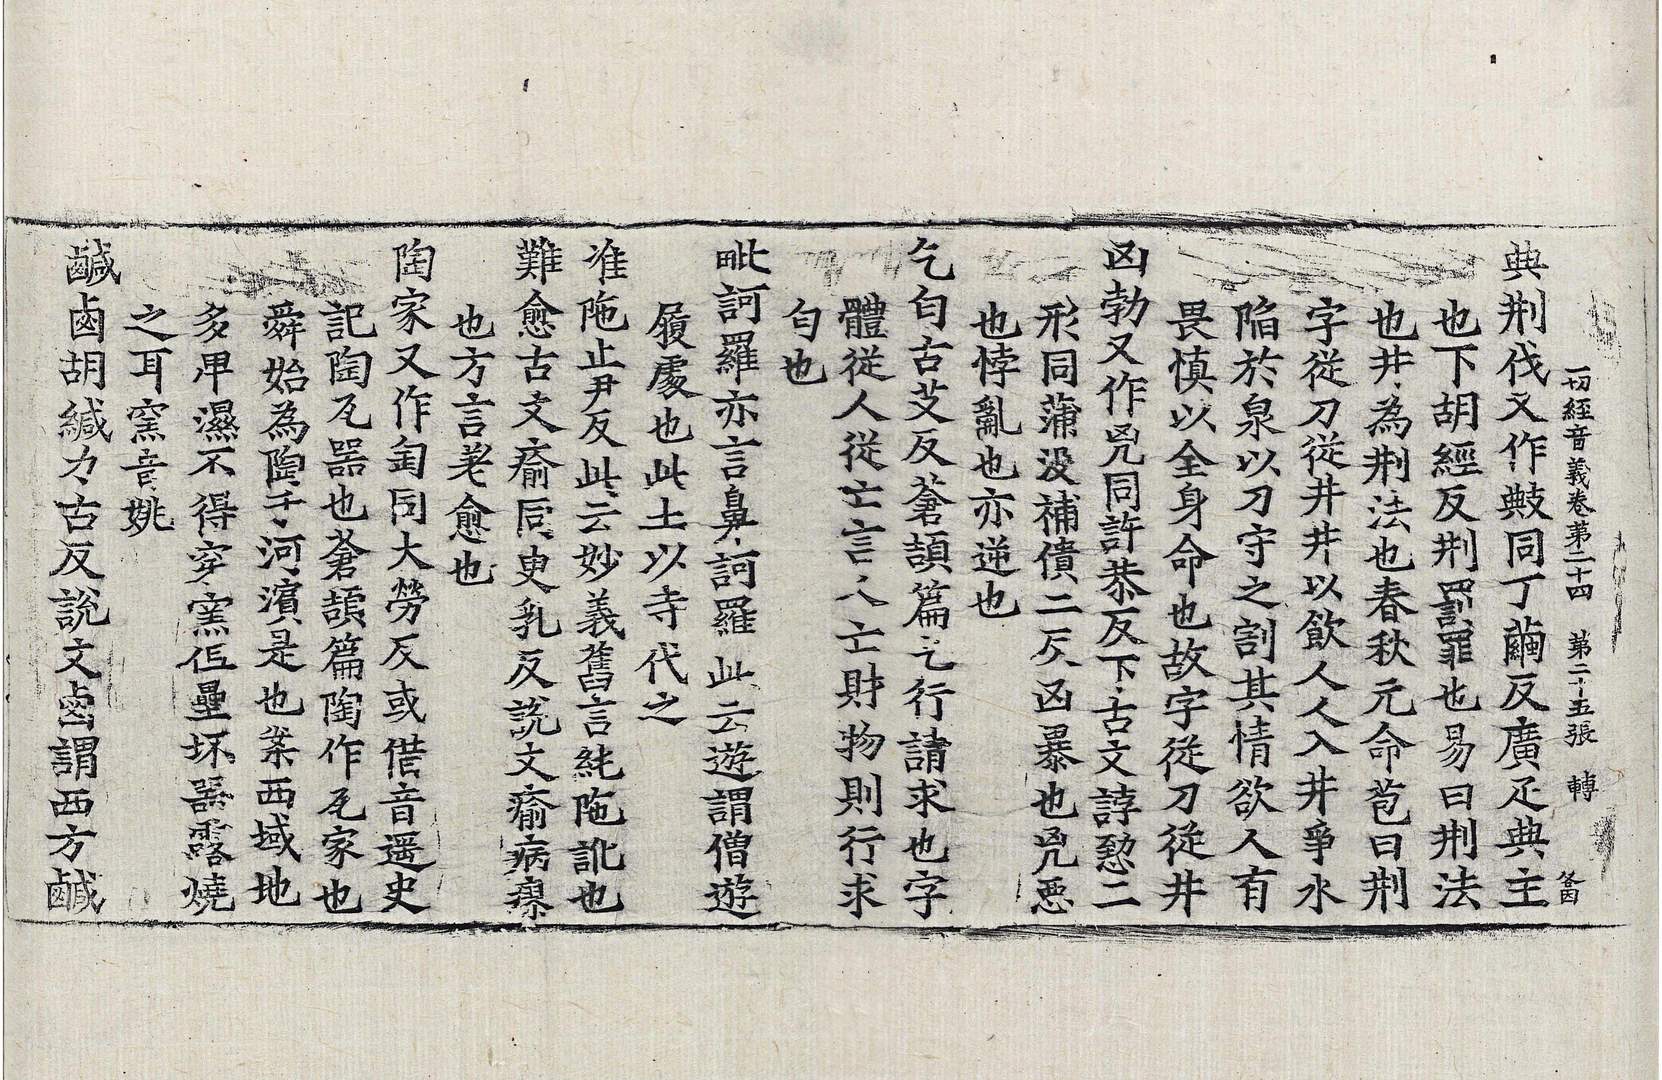 一切經音義卷第二十四　第二十五張　轉
典刑伐又作敟同丁繭反廣疋典主
也下胡經反刑罰罪也易曰刑法
也井為刑法也春秋元命苞曰刑
字從刀從井井以飲人人入井爭水
陷於泉以刀守之割其情欲人有
畏慎以全身命也故字從刀從井
凶勃又作兇同許恭反下古文誖愂二
形同蒲没補憒二反凶暴也兇惡
也悖亂也亦逆也
乞匄古艾反蒼頡篇乞行請求也字
體從人從亡言人亡財物則行求
匄也
毗訶羅亦言鼻訶羅此云遊謂僧遊
履處也此土以寺代之
准陁止尹反此云妙義舊言純陁訛也
難愈古文瘉同臾乳反説文瘉病瘳
也方言差愈也
陶家又作匋同大勞反或借音遥史
記陶瓦器也蒼頡篇陶作瓦家也
舜始為陶于河濱是也案西域地
多卑濕不得穿窯但壘坏器露燒
之耳窯音姚
鹹鹵胡緘力古反説文鹵謂西方鹹